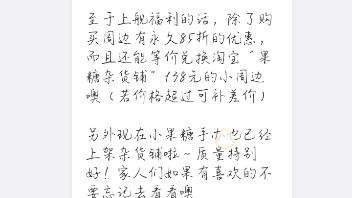 至于上舰福利的话，除了购
买周边有永久85折的优惠，
而且还能等价兑换淘宝“果
糖杂货铺”138元的小周边
噢（若价格超过可补差价）
另外现在小果糖手办也已经
上架杂货铺啦~质量特别
好！家人们如果有喜欢的不
要忘记去看看噢